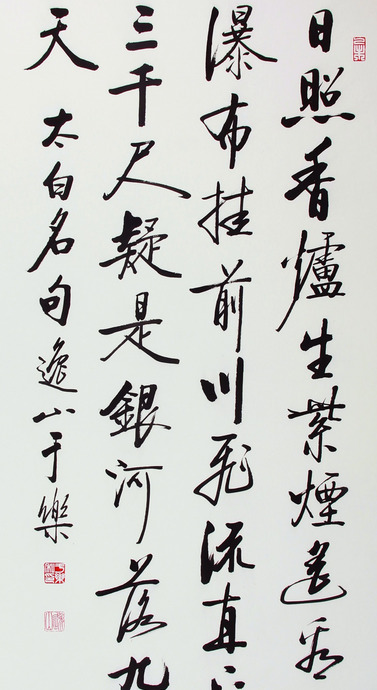 日照香爐生紫煙遙看
瀑布挂前川飛流直下
三千尺疑是銀河落九
天
太白名句逸山于樂